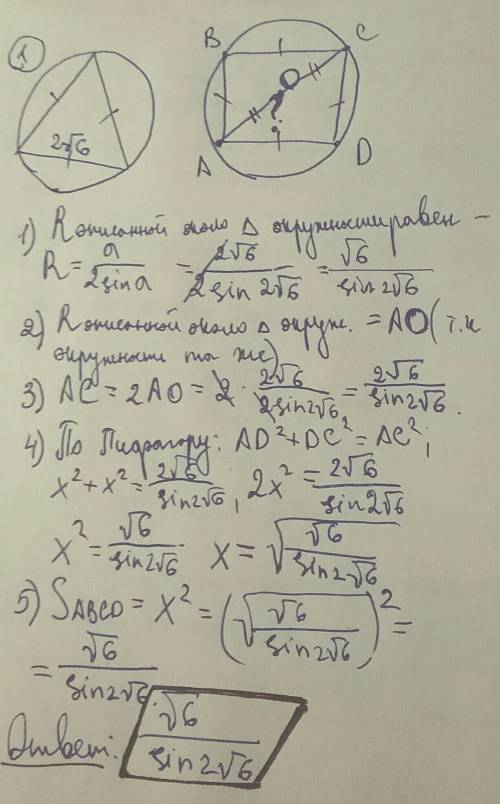 1
2√6
B C
O
?
A D
1) R описанной около Δ окружности равен –
R = a/2sina = 2√6/2sin 2√6 = √6/sin2√6
2) R описанной около Δ окруж. = AO (т.к
окружности та же)
3) AC = 2AO = 2 · 2√6/2sin2√6 = 2√6/sin2√6.
4) По Пифагору: AD²+DC² = AC²;
x²+x² = 2√6/sin2√6, 2x² = 2√6/sin2√6
x² = √6/sin2√6 x = √(√6/sin2√6)
5) SABCD = x² = (√(√6/sin2√6))² =
= √6/sin2√6.
Ответ: √6/sin2√6